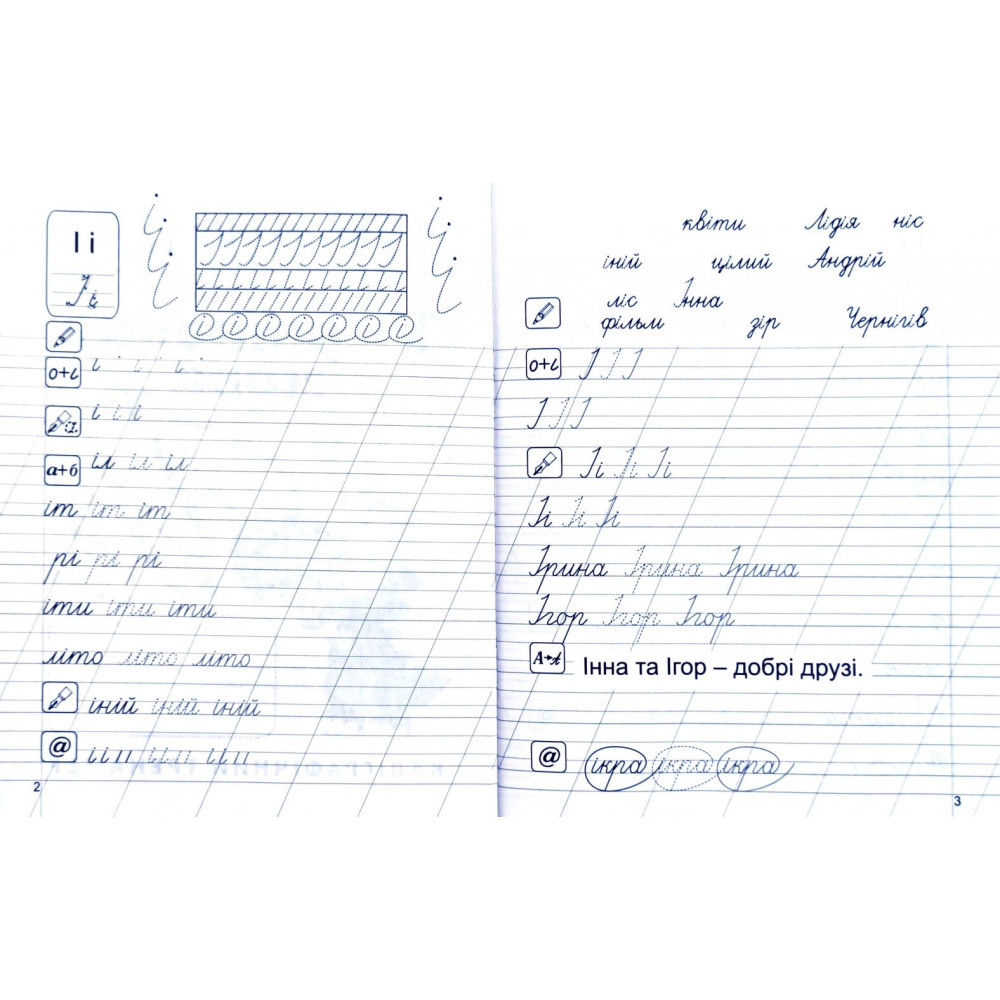 І і
І і
о+і
і і і і
і і і
а+б іл іл іл
іт іт іт
рі рі рі
іти іти іти
літо літо літо
іній іній іній
@
2
квіти Лідія ніс
іній цілий Андрій
ліс Інна
фільм зір Чернігів
о+і І І І
І І І
Іі Іі Іі
Іі Іі Іі
Ірина Ірина Ірина
Ігор Ігор Ігор
А→А Інна та Ігор – добрі друзі.
@ ікра ікра ікра
3